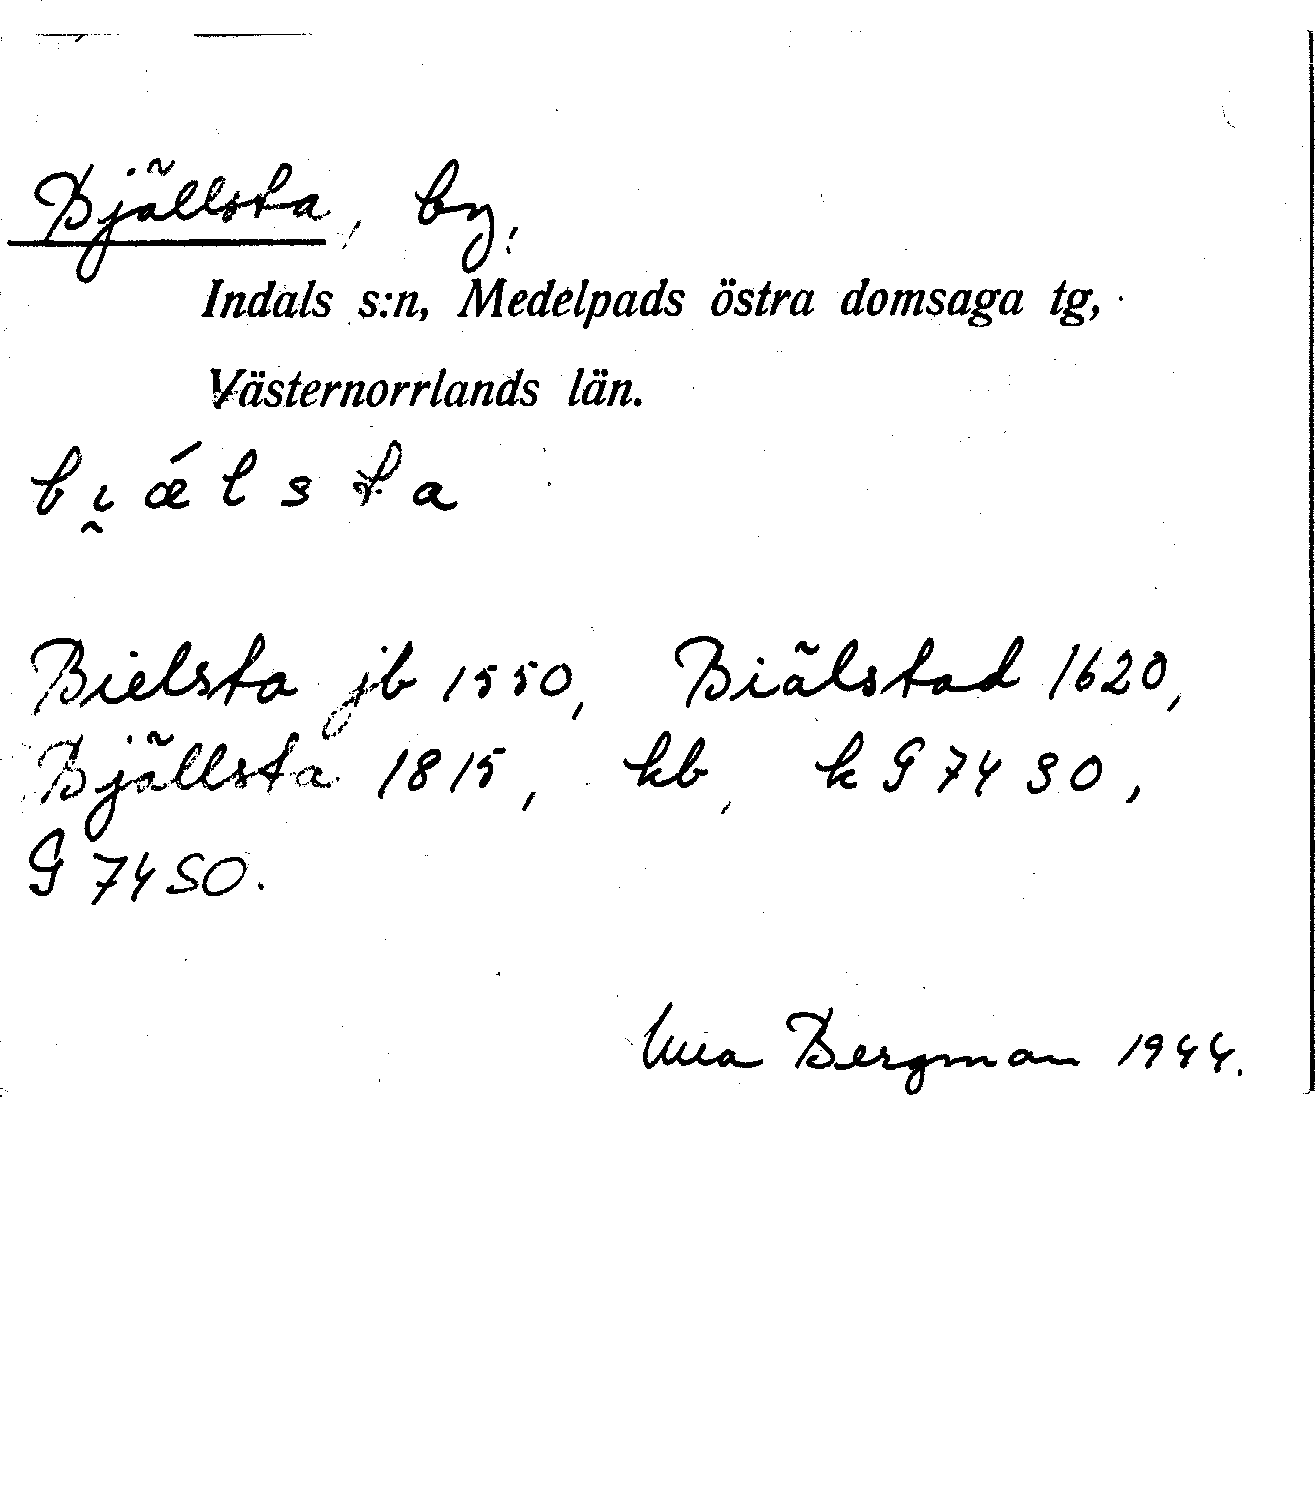 Bjällsta, by,
Indals s:n, Medelpads östra domsaga tg,
Västernorrlands län.
bi̯ǽlsta
Bielsta jb 1550, Biälstad 1620,
Bjällsta 1815, kb, k G 74 SO,
G 74 SO.
Bergman 1944.